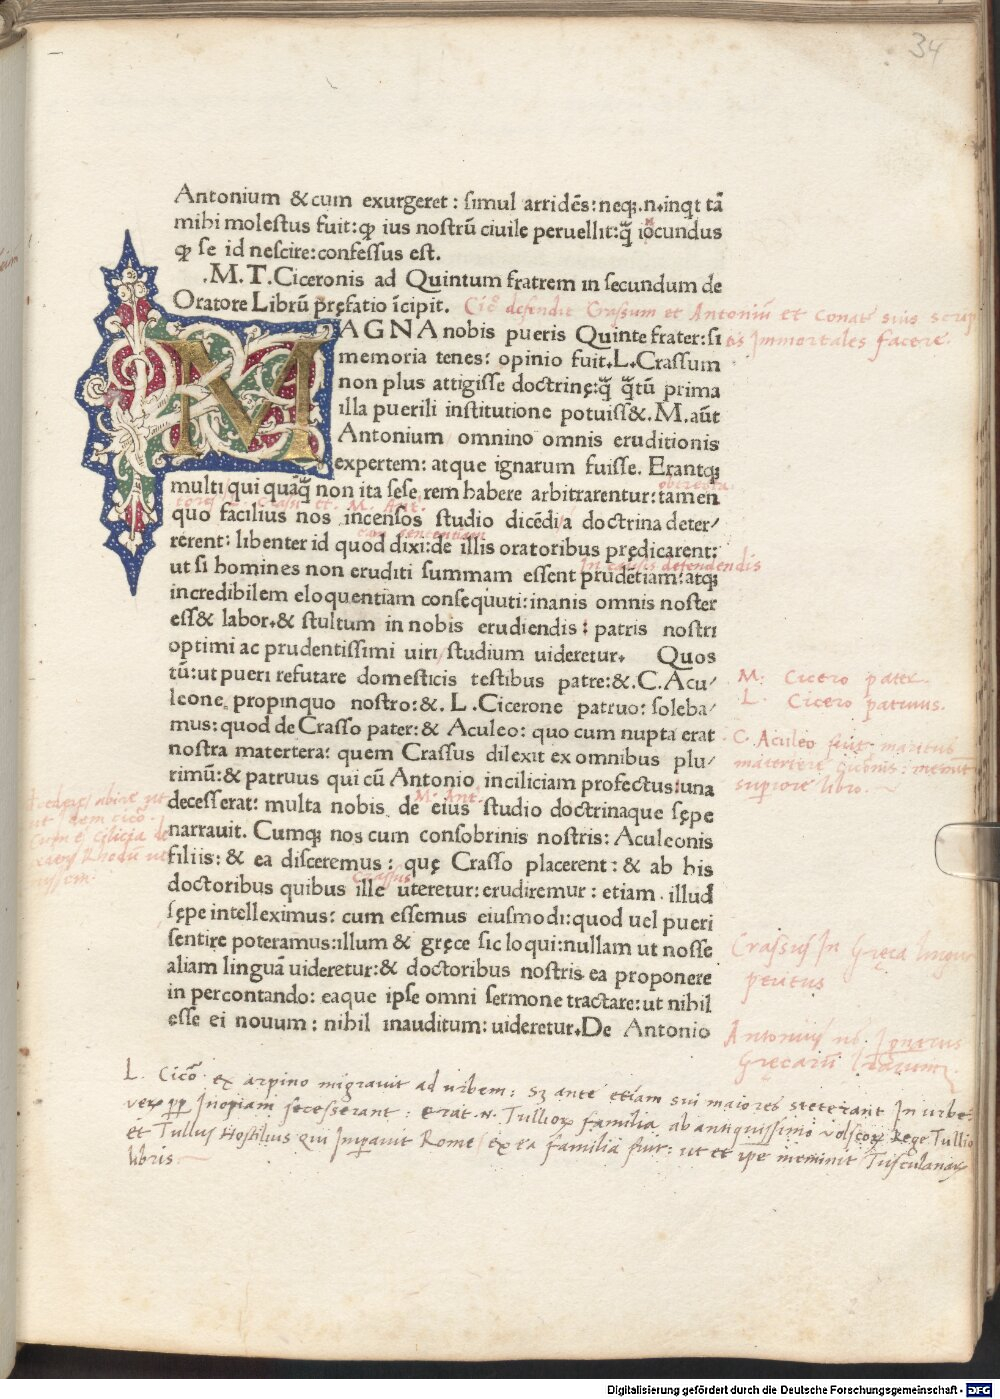 34
Antonium & cum exurgeret: simul arridēs: neq;.n.inqt tā
mihi molestus fuit: ꝙ ius nostrū ciuile peruellit: q̄ iocundus
ꝙ se id nescire: confessus est.
.M.T.Ciceronis ad Quintum fratrem in secundum de
Oratore Librū pręfatio īcipit.
Cicō defendit Crassum et Antoniū et Conatr suis scrip
tis Immortales facere.
MAGNA nobis pueris Quinte frater: si
memoria tenes: opinio fuit.L.Crassum
non plus attigisse doctrinę: q̄ q̄tū prima
illa puerili institutione potuiss&.M.aūt
Antonium omnino omnis eruditionis
expertem: atque ignarum fuisse. Erantq;
multi/qui quāq̄ non ita sese rem habere arbitrarentur: tamen
quo facilius nos incensos studio dicēdi a doctrina deter/
rerent: libenter id quod dixi: de illis oratoribus prędicarent:
eam sententiam
ut si homines non eruditi summam essent prudētiam: atq;
In causis defendendis
incredibilem eloquentiam consequuti: inanis omnis noster
ess& labor.& stultum in nobis erudiendis: patris nostri
optimi ac prudentissimi uiri/studium uideretur. Quos
tū: ut pueri refutare domesticis testibus patre: &.C.Acu/
leone propinquo nostro: &.L.Cicerone patruo: soleba/
mus: quod de Crasso pater: & Aculeo: quo cum nupta erat
nostra matertera: quem Crassus dilexit ex omnibus plu/
rimū: & patruus qui cū Antonio in ciliciam profectus: una
decesserat: multa nobis de eius studio doctrinaque sępe
M. Ant.
narrauit. Cumq; nos cum consobrinis nostris: Aculeonis
filiis: & ea disceremus: quę Crasso placerent: & ab his
doctoribus quibus ille uteretur: erudiremur: etiam illud
Crassus
sępe intelleximus: cum essemus eiusmodi: quod uel pueri
sentire poteramus: illum & gręce sic loqui: nullam ut nosse
aliam linguā uideretur: & doctoribus nostris ea proponere
in percontando: eaque ipse omni sermone tractare: ut nihil
esse ei nouum: nihil inauditum: uideretur. De Antonio
M: Cicero pater
L. Cicero patruus.
C. Aculeo fuit maritus
superiore libro.
Crassus In Gręca lingua
peritus
Antonius
L. Cicō ex arpino migrauit ad urbem: sz ante etiam sui maiores steterant In urbe
Inopiam secesserant: erat.n. familia ab antiquissimo Rege Tullio
et Tullus Hostilius qui Imperauit Rome/ex ea familia fuit: ut et ipe meminit Tusculanarum
libris
Digitalisierung gefördert durch die Deutsche Forschungsgemeinschaft - DFG